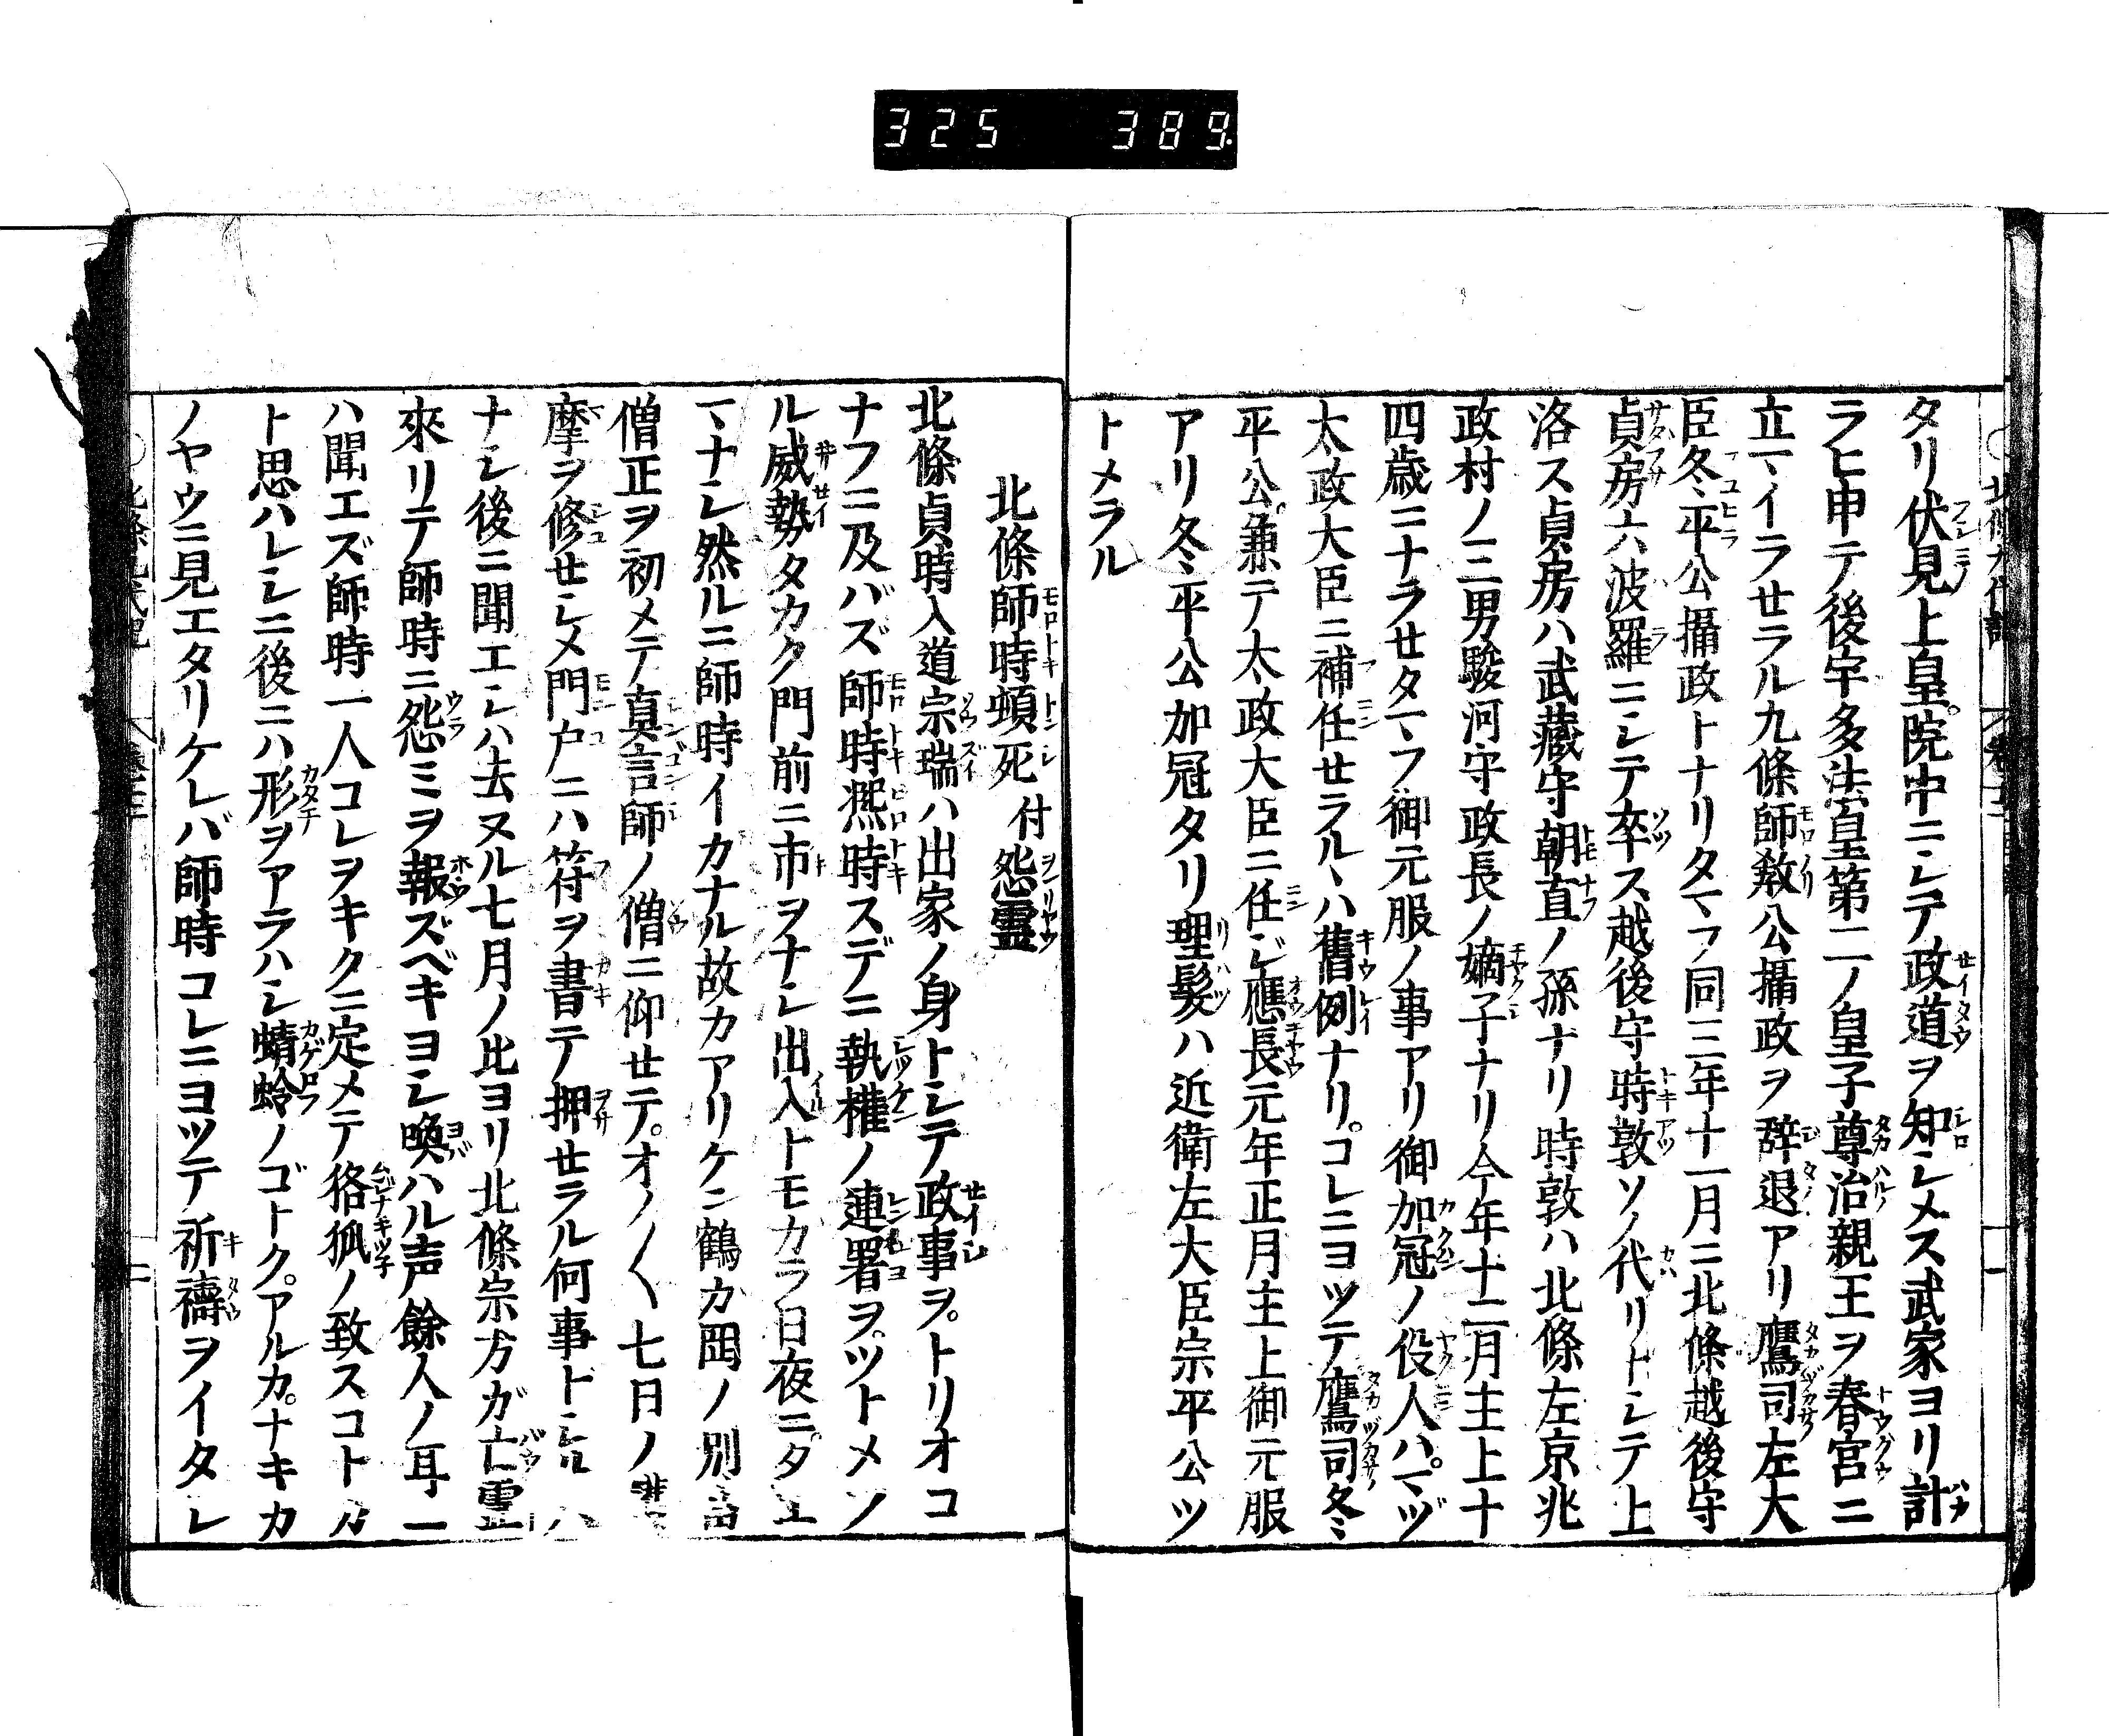 325 389
タリ伏見上皇院中ニシテ政道ヲ知シメス武家ヨリ計
ラヒ申テ後宇多法皇第二ノ皇子尊治親王ヲ春宮ニ
立マイラセラル九條師教公攝政ヲ辞退アリ鷹司左大
臣冬平公攝政トナリタマフ同三年十一月ニ北條越後守
貞房六波羅ニシテ卒ス越後守時敦ソノ代リトシテ上
洛ス貞房ハ武藏守朝直ノ孫ナリ時敦ハ北條左京兆
政村ノ三男駿河守政長ノ嫡子ナリ今年十二月主上十
四歳ニナラセタマフ御元服ノ事アリ御加冠ノ役人ハマヅ
太政大臣ニ補任セラルヽハ舊例ナリコレニヨツテ鷹司冬
平公兼テ太政大臣ニ任ジ應長元年正月主上御元服
アリ冬平公加冠タリ理髪ハ近衛左大臣宗平公ツ
トメラル
北條師時頓死付怨霊
北條貞時入道宗瑞ハ出家ノ身トシテ政事ヲトリオコ
ナフニ及バズ師時熈時スデニ執權ノ連署ヲツトメソ
ル威勢タカク門前ニ市ヲナシ出入トモカラ日夜ニタエ
マナシ然ルニ師時イカナル故カアリケン鶴カ岡ノ別當
僧正ヲ初メテ真言師ノ僧ニ仰セテオノ〱七日ノ護
摩ヲ修セシメ門戸ニハ符ヲ書テ押セラル何事トシハ
ナシ後ニ聞エシハ去ヌル七月ノ比ヨリ北條宗方ガ亡霊
來リテ師時ニ怨ミヲ報ズベキヨシ喚ハル声餘人ノ耳ニ
ハ聞エズ師時一人コレヲキクニ定メテ狢狐ノ致スコトカ
ト思ハレシニ後ニハ形ヲアラハシ蜻蛉ノゴトクアルカナキカ
ノヤウニ見エタリケレバ師時コレニヨツテ祈禱ヲイタレ